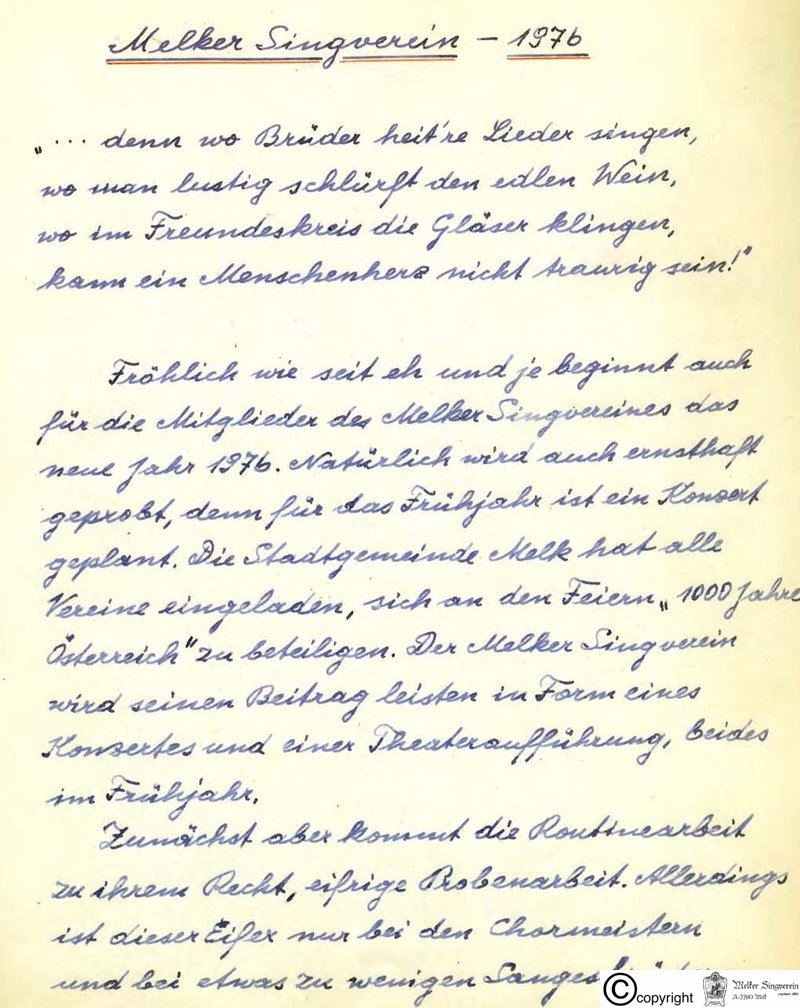 Melker Singverein – 1976
„... denn wo Brüder heit're Lieder singen,
wo man lustig schlürft den edlen Wein,
wo im Freundeskreis die Gläser klingen,
kann ein Menschenherz nicht traurig sein!"
Fröhlich wie seit eh und je beginnt auch
für die Mitglieder des Melker Singvereines das
neue Jahr 1976. Natürlich wird auch ernsthaft
geprobt, denn für das Frühjahr ist ein Konzert
geplant. Die Stadtgemeinde Melk hat alle
Vereine eingeladen, sich an den Feiern „1000 Jahre
Österreich" zu beteiligen. Der Melker Singverein
wird seinen Beitrag leisten in Form eines
Konzertes und einer Theateraufführung, beides
im Frühjahr.
Zunächst aber kommt die Routinearbeit
zu ihrem Recht, eifrige Probenarbeit. Allerdings
ist dieser Eifer nur bei den Chormeistern
und bei etwas zu wenigen
© copyright Melker Singverein
A-3390 Melk